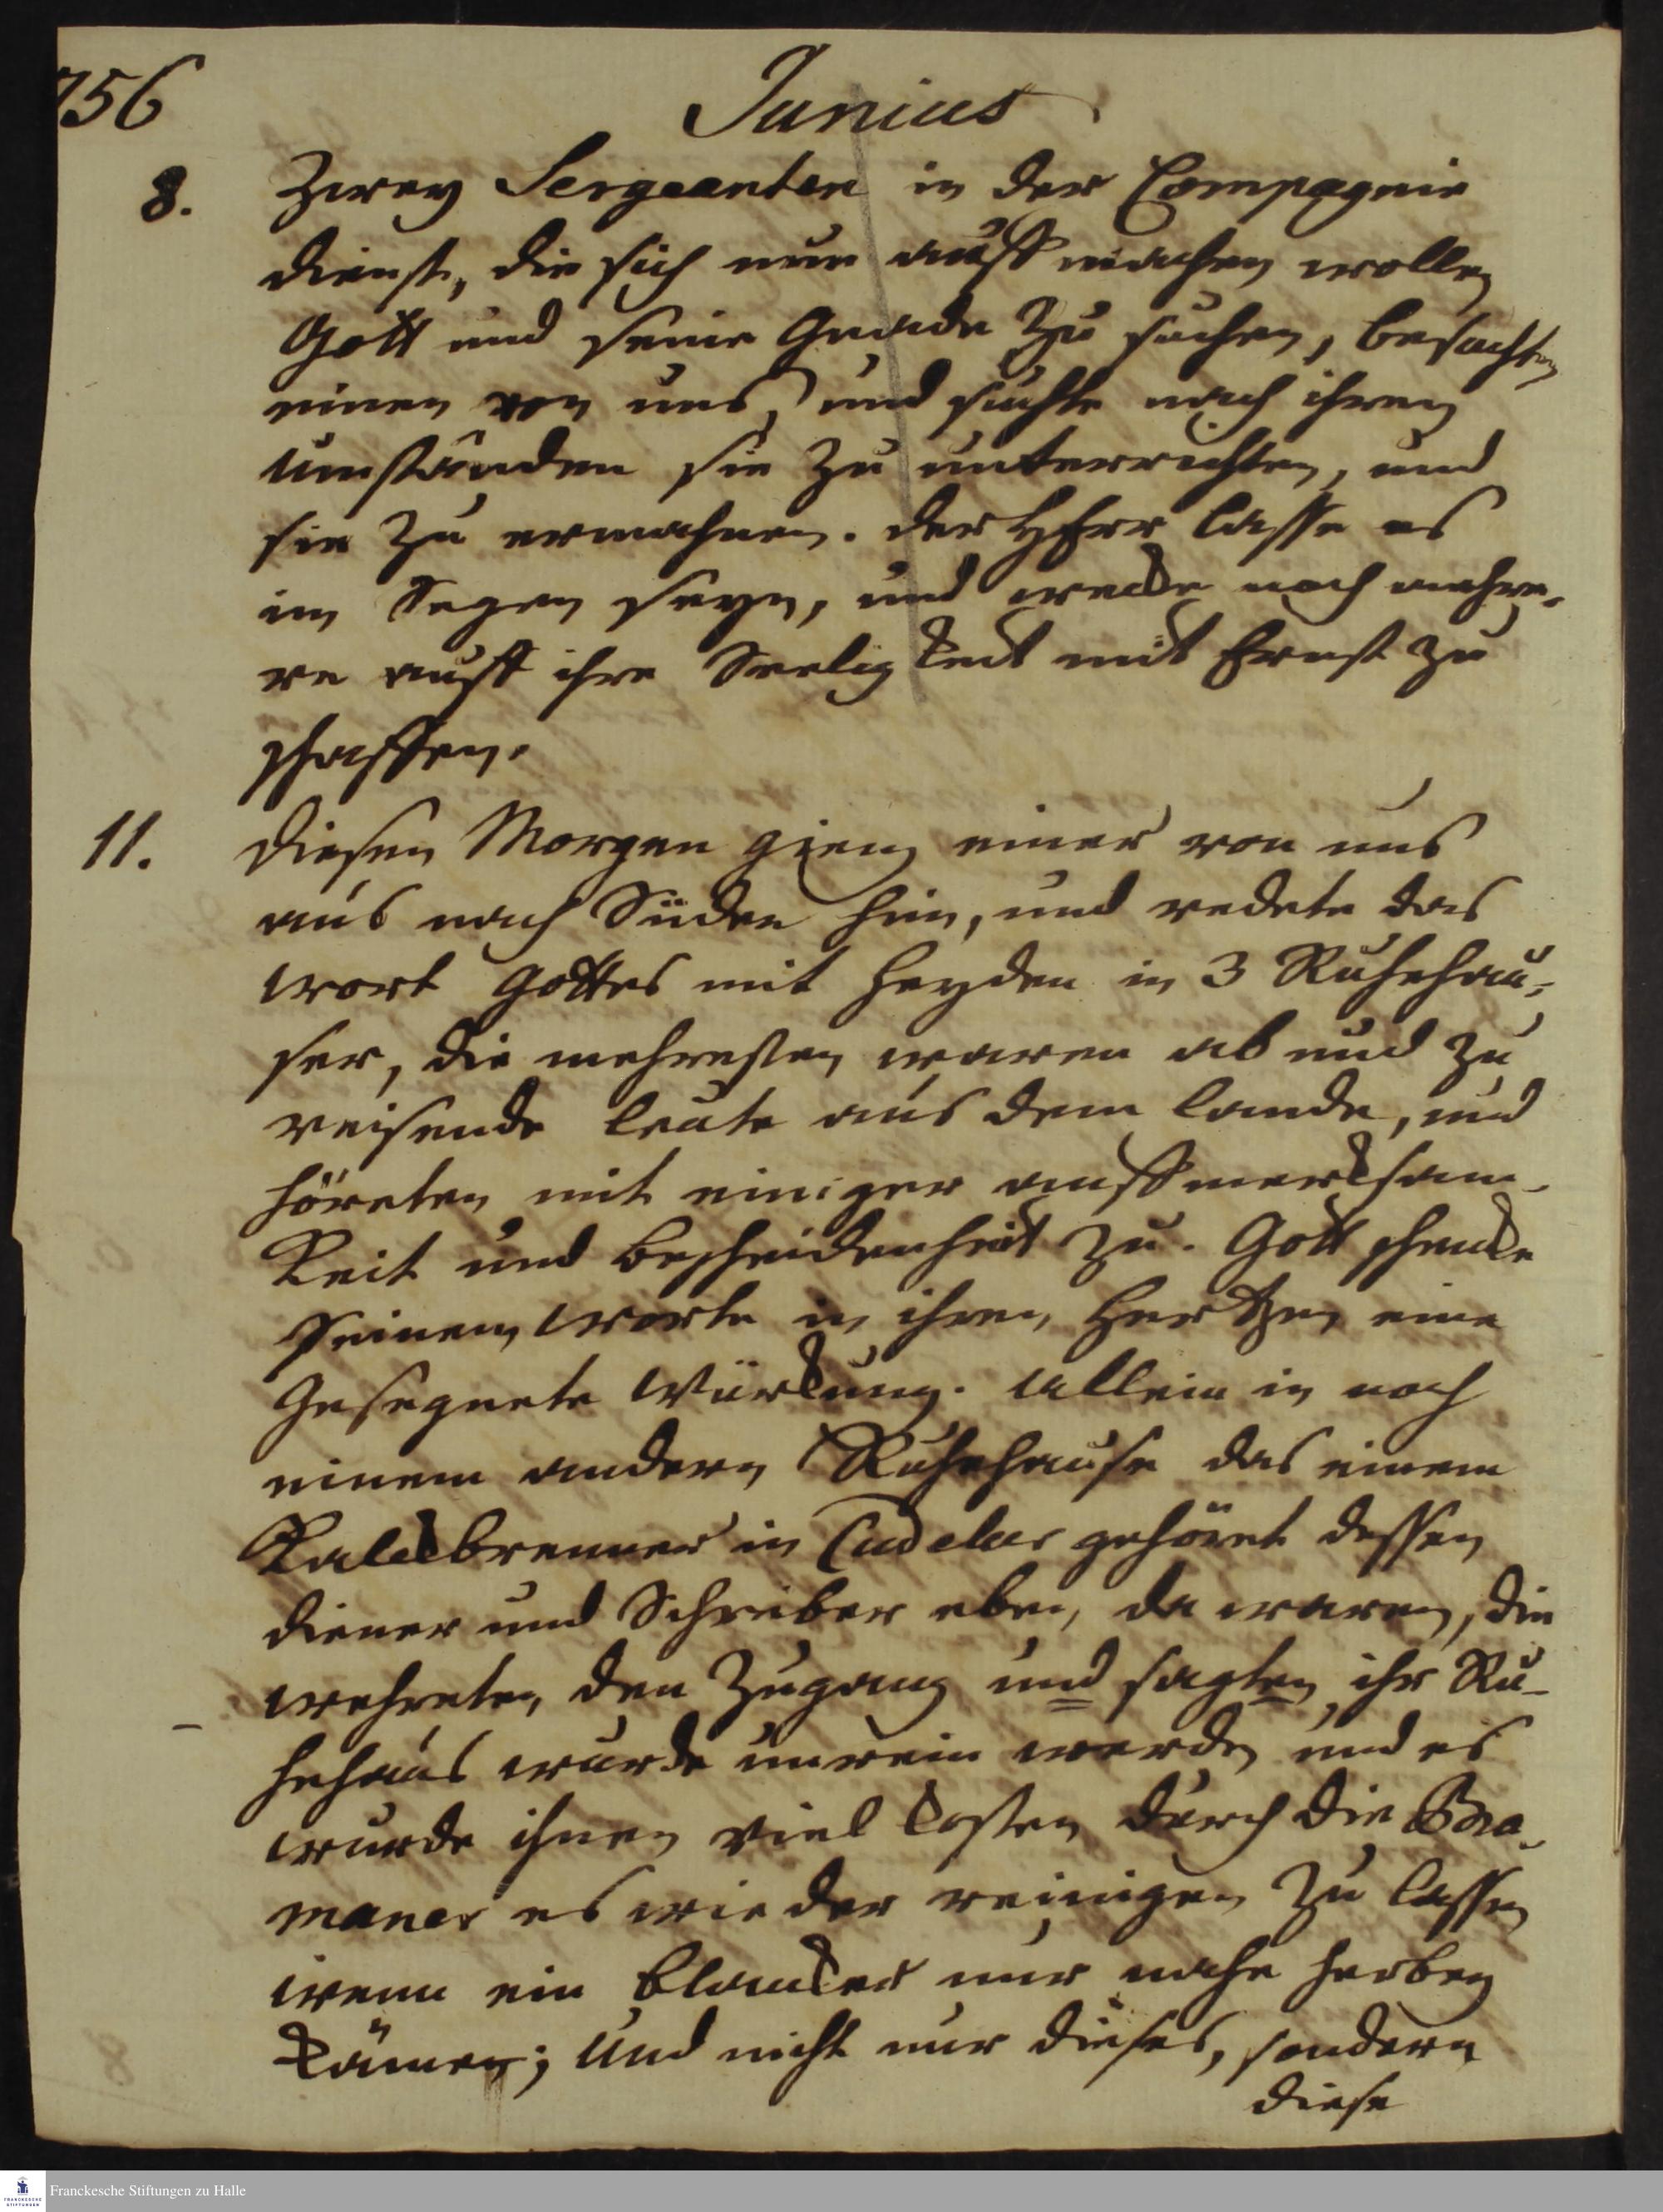 756
Junius
8. Zwey Sergeanten in der Compagnie
dienst, die sich nun auff machen wollen
Gott und seine Gnade zu suchen, besuchten
einen von uns, und suchte nach ihren
umständen sie zu unterrichten, und
sie zu ermahnen. der HErr lasse es
im Segen seyn, und wecke noch mehre-
re auff ihre Seeligkeit mit Ernst zu
schaffen.
11. diesen Morgen gieng einer von uns
aus nach Süden hin, und redete das
wort Gottes mit Heyden in 3 Ruhehäu-
ser, die mehresten waren ab und zu
reisende leute aus dem lande, und
höreten mit einiger auffmercksam-
keit und bescheidenheit zu. Gott schencke
seinem worte in ihren Hertzen eine
Gesegnete Würckung. allein in noch
einem andern Ruhehause das einem
Kalckbrenner in Cudelur gehöret dessen
diener und Schreiber eben da waren, die
wehreten den Zugang und sagten ihr Ru-
hehaus wurde unrein werden und es
wurde ihnen viel kosten durch die Bra-
maner es wieder reinigen zu lassen
wenn ein blancker nur nahe herbey
kämen; und nicht nur dieses, sondern
diese
Franckesche Stiftungen zu Halle